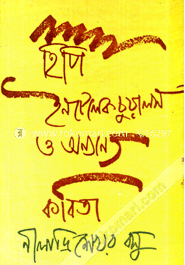 হিপি
ইনটেলেকচুয়ালস
ও অন্যান্য
কবিতা
নীলাদ্রিশেখর বসু